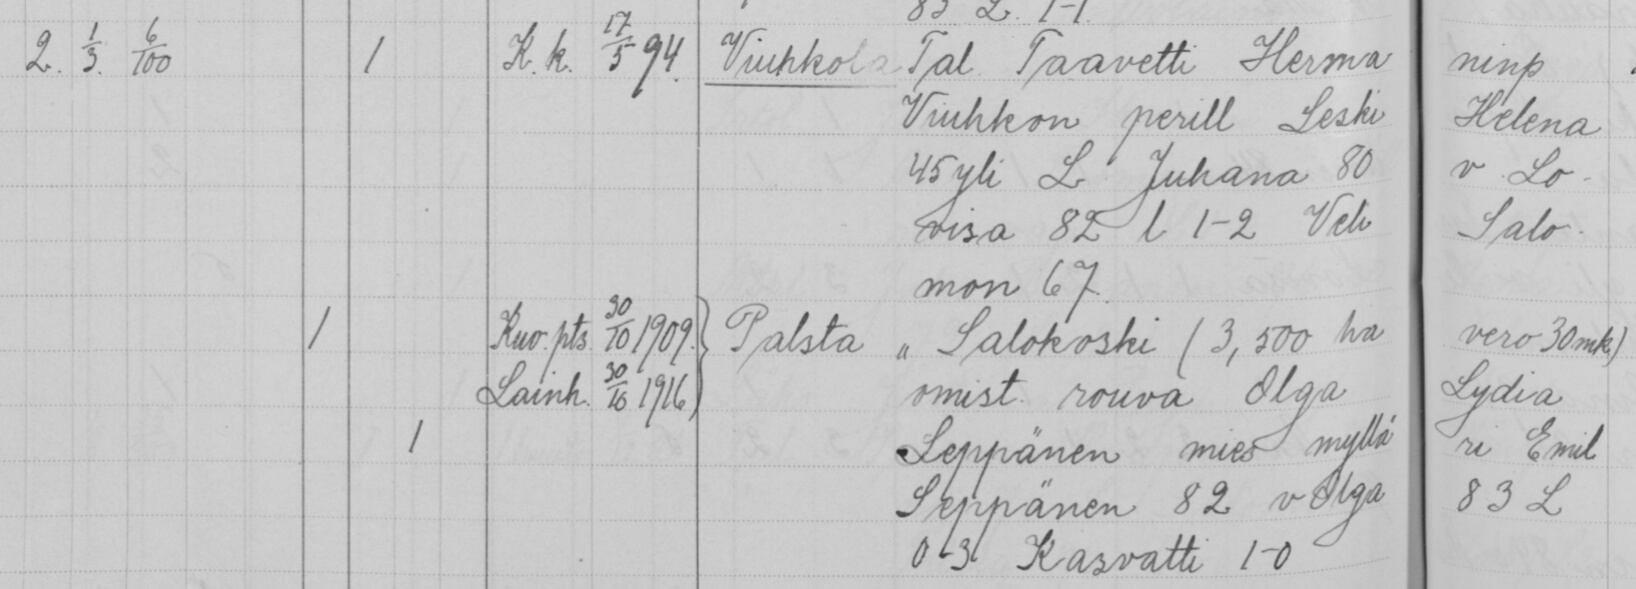 83 L. 1-1.
2. 1/3. 6/100 1 K. k. 17/5 94. Viuhkola Tal. Taavetti Herma ninp
Viuhkon perill Leski Helena
45 yli L Juhana 80 v Lo-
visa 82 l 1-2 Veli Salo-
mon 67.
1 Kuv. pts. 30/10 1909. } Palsta „ Salokoski (3,500 ha vero 30 mk)
Lainh. 30/10 1916 omist. rouva Olga Lydia
1 Seppänen mies myllä ri Emil
Seppänen 82 v Olga 83 L
0-3 Kasvatti 1-0